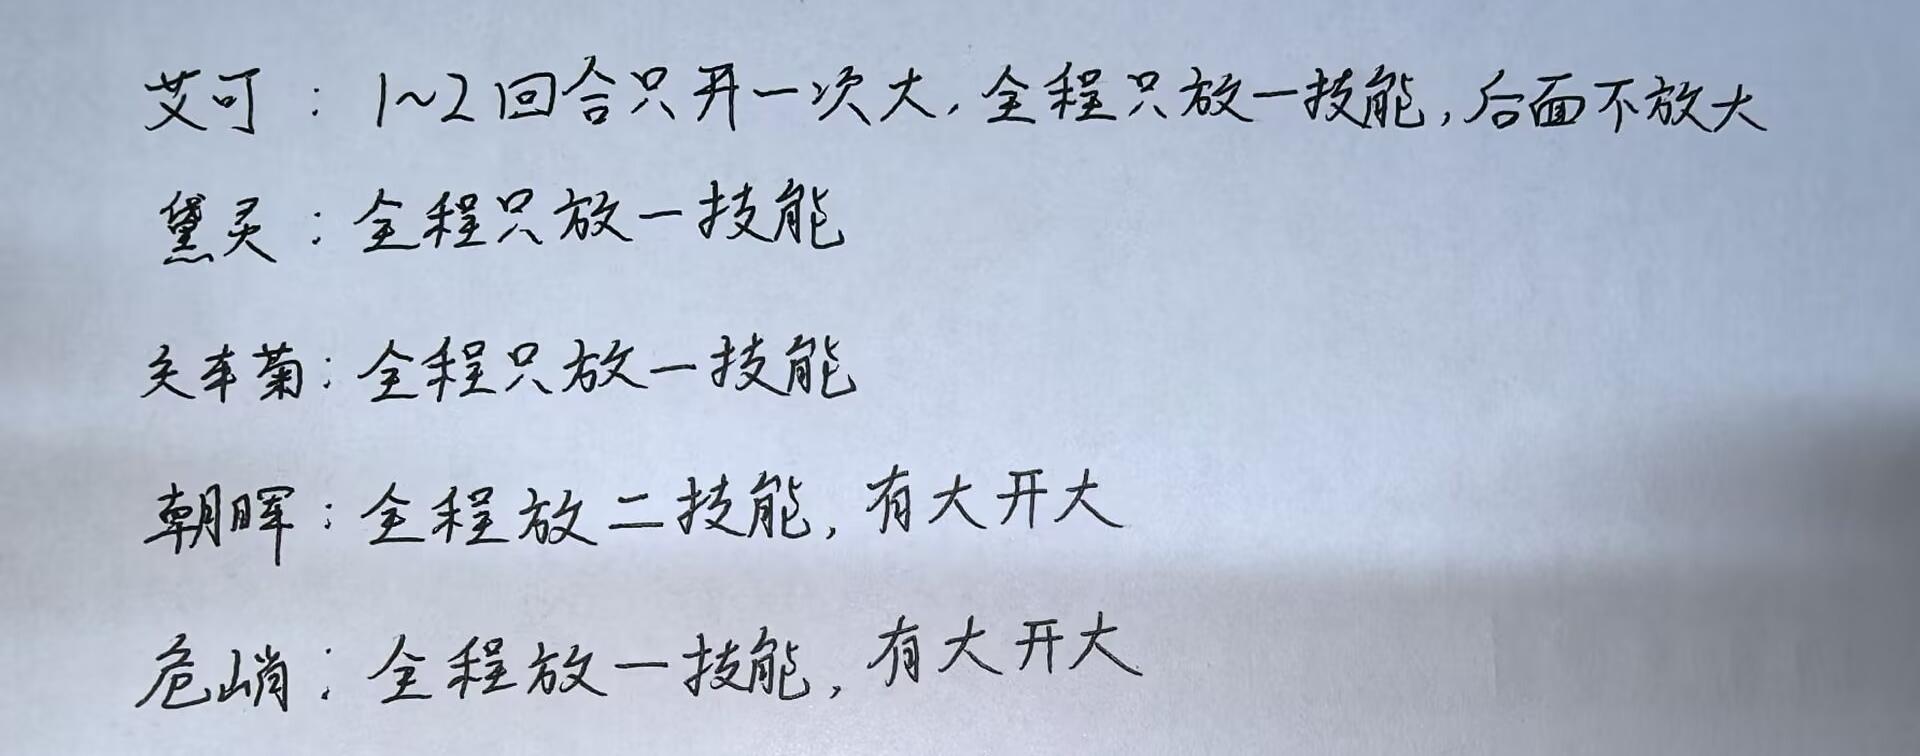 艾可：1~2回合只开一次大，全程只放一技能，后面不放大
黛灵：全程只放一技能
矢车菊：全程只放一技能
朝晖：全程放二技能，有大开大
危峭：全程放一技能，有大开大